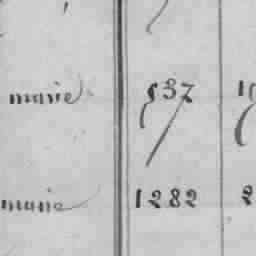 marie 537
marie 1282 2